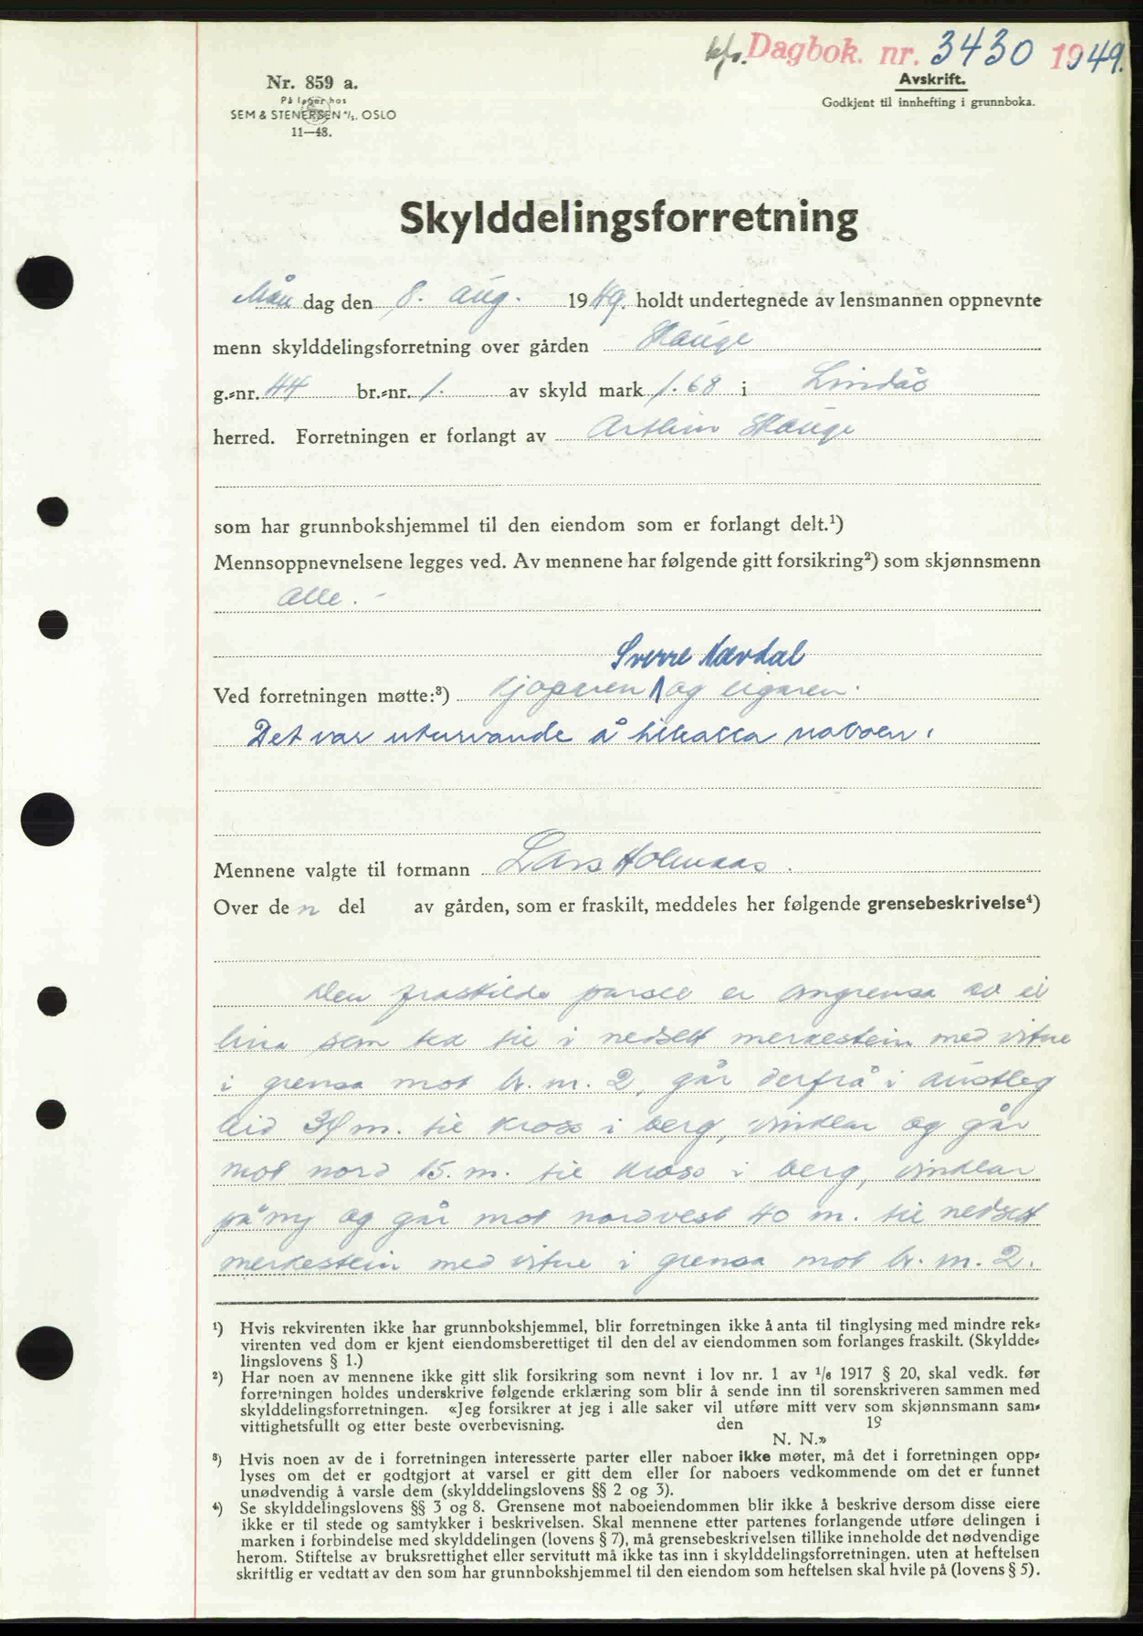 kfr. Dagbok. nr. 3430 1949.
Nr. 859 a.
På lager hos
SEM & STENERSEN A/S. OSLO
11—48.
Avskrift.
Godkjent til innhefting i grunnboka.
Skylddelingsforretning
Mån dag den 8. aug. 1949. holdt undertegnede av lensmannen oppnevnte
menn skylddelingsforretning over gården Hauge
g.-nr. 44 br.-nr. 1. av skyld mark 1.68 i Lindås
herred. Forretningen er forlangt av Hauge
som har grunnbokshjemmel til den eiendom som er forlangt delt.¹)
Mennsoppnevnelsene legges ved. Av mennene har følgende gitt forsikring²) som skjønnsmenn
Alle. -
Sverre Nævdal
Ved forretningen møtte:³) Kjøparen og eigaren.
Det var uturvande å tilkalla naboen.
Mennene valgte til formann Lars Holmaas.
Over de n del av gården, som er fraskilt, meddeles her følgende grensebeskrivelse⁴)
Den fraskilde parsell er omgrensa av ei
lina som tek til i nedsett merkestein med vitne
i grensa mot br. nr. 2, går derfrå i austleg
leid 34 m. til kross i berg, vinklar og går
mot nord 15. m. til kross i berg, vinklar
på ny og går mot nordvest 40 m. til nedsett
merkestein med vitne i grensa mot br. nr. 2.
¹) Hvis rekvirenten ikke har grunnbokshjemmel, blir forretningen ikke å anta til tinglysing med mindre rek-
virenten ved dom er kjent eiendomsberettiget til den del av eiendommen som forlanges fraskilt. (Skyldde-
lingslovens § 1.)
²) Har noen av mennene ikke gitt slik forsikring som nevnt i lov nr. 1 av 1/6 1917 § 20, skal vedk. før
forretningen holdes underskrive følgende erklæring som blir å sende inn til sorenskriveren sammen med
skylddelingsforretningen. «Jeg forsikrer at jeg i alle saker vil utføre mitt verv som skjønnsmann sam-
vittighetsfullt og etter beste overbevisning. den 19
N. N.»
³) Hvis noen av de i forretningen interesserte parter eller naboer ikke møter, må det i forretningen opp-
lyses om det er godtgjort at varsel er gitt dem eller for naboers vedkommende om det er funnet
unødvendig å varsle dem (skylddelingslovens §§ 2 og 3).
⁴) Se skylddelingslovens §§ 3 og 8. Grensene mot naboeiendommen blir ikke å beskrive dersom disse eiere
ikke er til stede og samtykker i beskrivelsen. Skal mennene etter partenes forlangende utføre delingen i
marken i forbindelse med skylddelingen (lovens § 7), må grensebeskrivelsen tillike inneholde det nødvendige
herom. Stiftelse av bruksrettighet eller servitutt må ikke tas inn i skylddelingsforretningen. uten at heftelsen
skriftlig er vedtatt av den som har grunnbokshjemmel til den eiendom som heftelsen skal hvile på (lovens § 5).